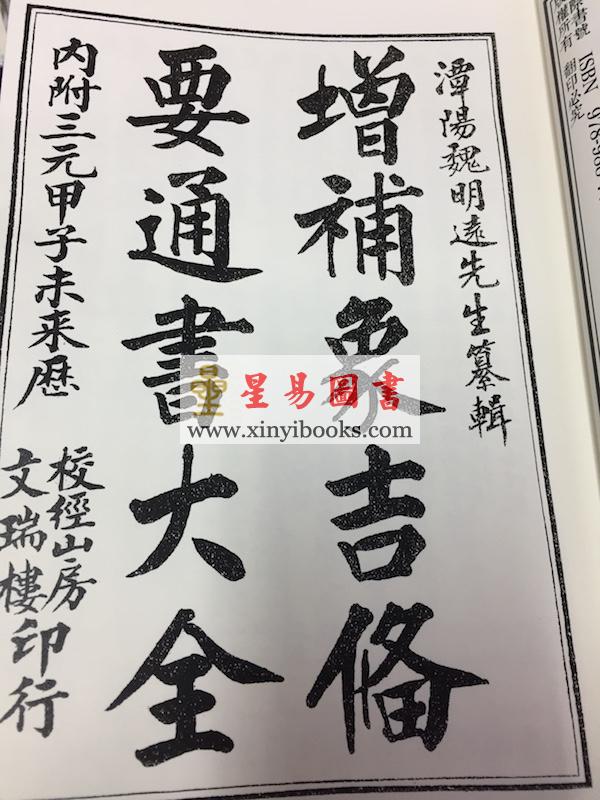 潭陽魏明遠先生纂輯
增補象吉備
要通書大全
內附三元甲子未来歷
校經山房
文瑞樓印行
星易圖書
www.xinyibooks.com
翻印必究
ISBN 978-986